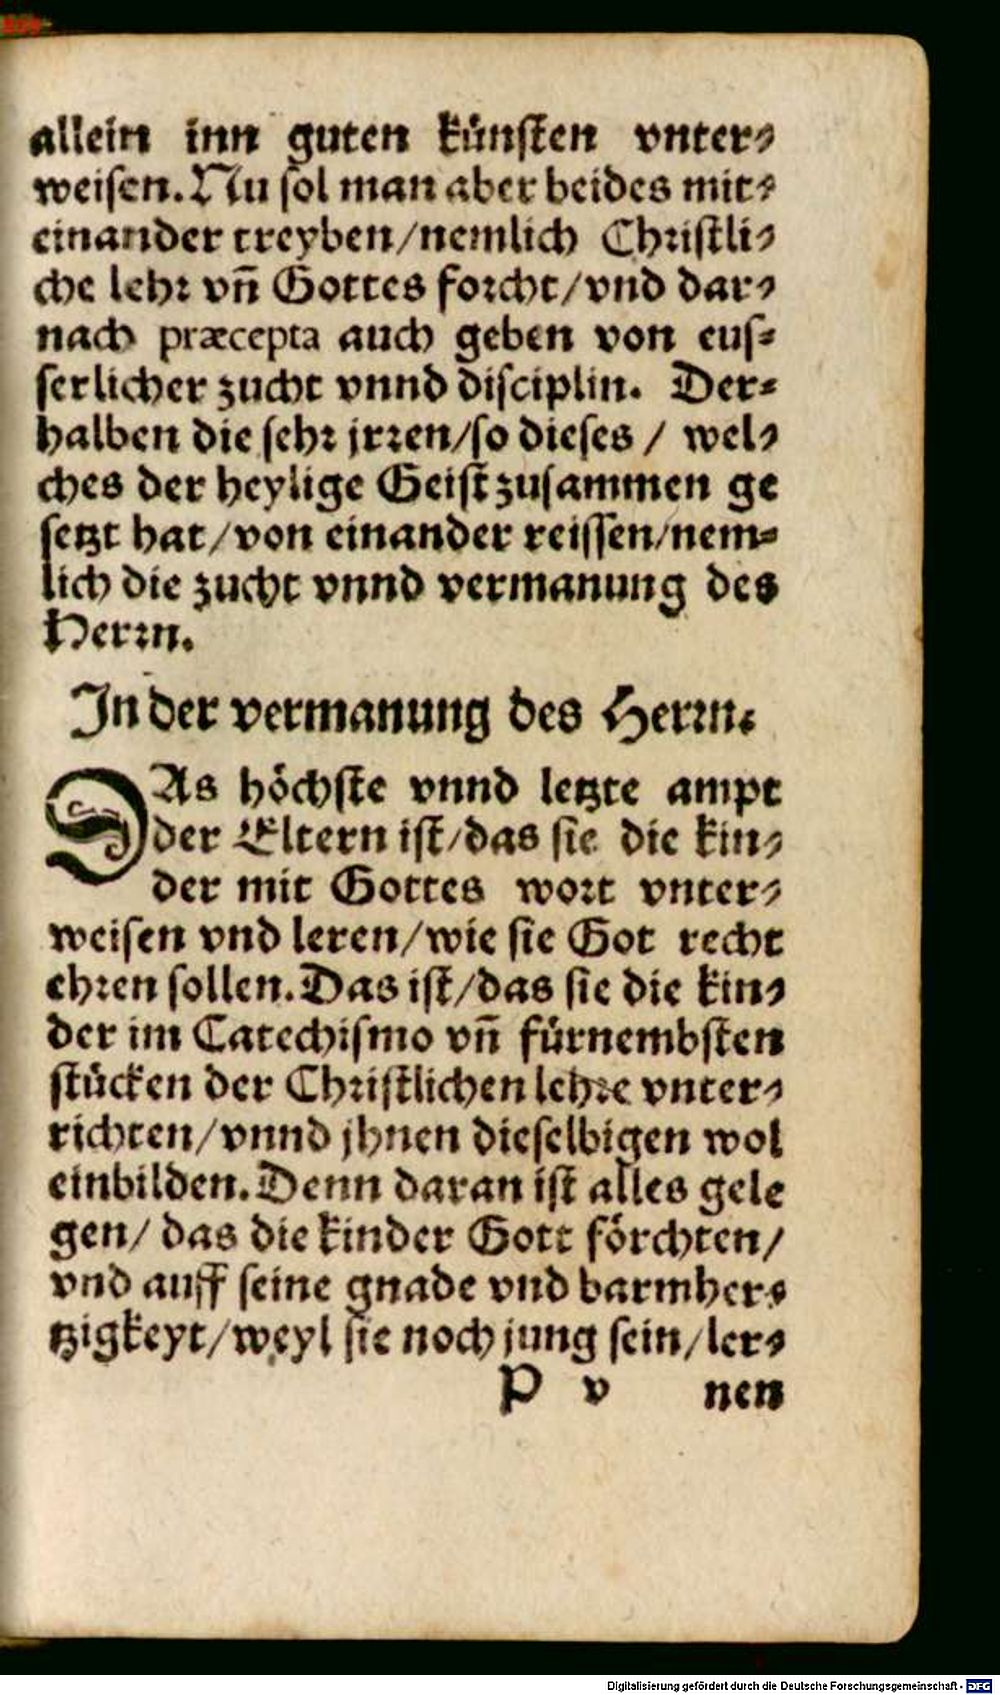 allein inn guten künsten vnter⸗
weisen. Nu sol man aber beides mit⸗
einander treyben/nemlich Christli⸗
che lehr vñ Gottes forcht/vnd dar⸗
nach præcepta auch geben von eus⸗
serlicher zucht vnnd disciplin. Der⸗
halben die sehr jrren/so dieses / wel⸗
ches der heylige Geist zusammen ge
setzt hat/von einander reissen/nem⸗
lich die zucht vnnd vermanung des
Herrn.
In der vermanung des Herrn.
DAs höchste vnnd letzte ampt
der Eltern ist/das sie die kin⸗
der mit Gottes wort vnter⸗
weisen vnd leren/wie sie Got recht
ehren sollen. Das ist/das sie die kin⸗
der im Catechismo vñ fürnembsten
stücken der Christlichen lehre vnter⸗
richten/vnnd jhnen dieselbigen wol
einbilden. Denn daran ist alles gele
gen/ das die kinder Gott förchten/
vnd auff seine gnade vnd barmher⸗
tzigkeyt/weyl sie noch jung sein/ler⸗
P v nen
Digitalisierung gefördert durch die Deutsche Forschungsgemeinschaft - DFG